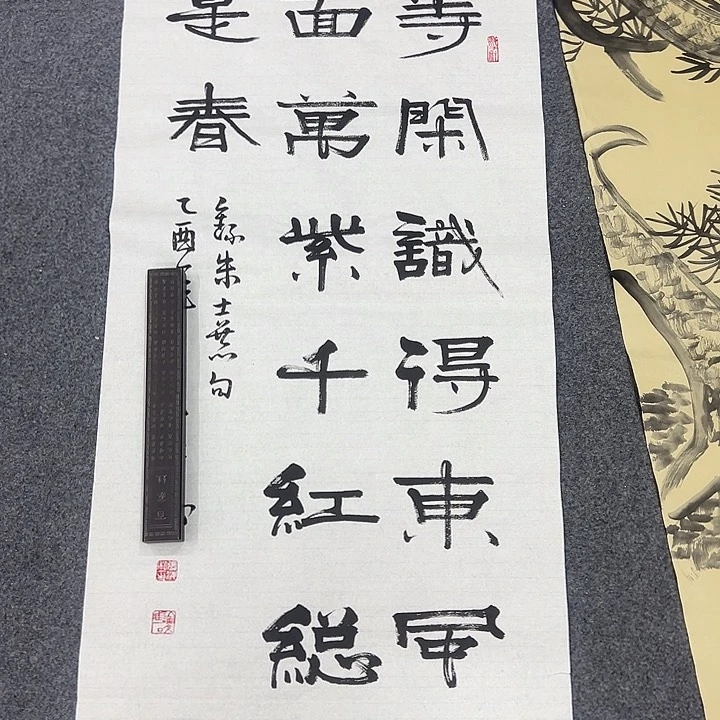 等閑識得東風
面萬紫千紅総
是春
錄朱士熹句
乙酉